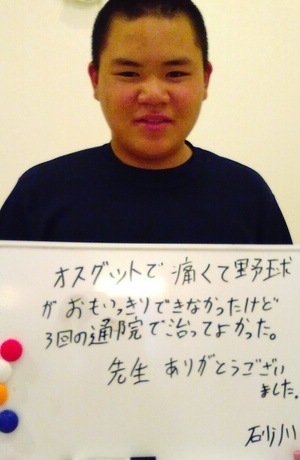 オスグットで痛くて野球
がおもいっきりできなかったけど
3回の通院で治ってよかった。
先生 ありがとうござい
ました。
砂川